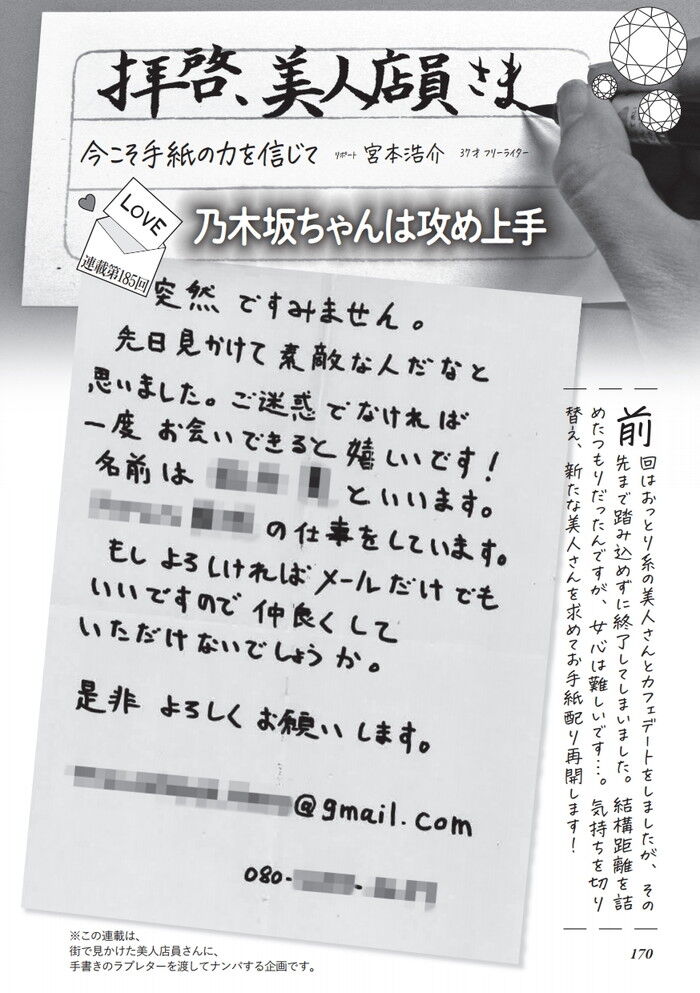 拝啓、美人店員さま
今こそ手紙の力を信じて リポート 宮本浩介 37才 フリーライター
LOVE
連載第185回
乃木坂ちゃんは攻め上手
突然ですみません。
先日見かけて素敵な人だなと
思いました。ご迷惑でなければ
一度お会いできると嬉しいです!
名前は
といいます。
の仕事をしています。
もしよろしければメールだけでも
いいですので仲良くして
いただけないでしょうか。
是非よろしくお願いします。
@gmail.com
080- -
前回はおっとり系の美人さんとカフェデートをしましたが、その
先まで踏み込めずに終了してしまいました。結構距離を詰
めたつもりだったんですが、女心は難しいです…。気持ちを切り
替え、新たな美人さんを求めてお手紙配り再開します!
※この連載は、
街で見かけた美人店員さんに、
手書きのラブレターを渡してナンパする企画です。
170